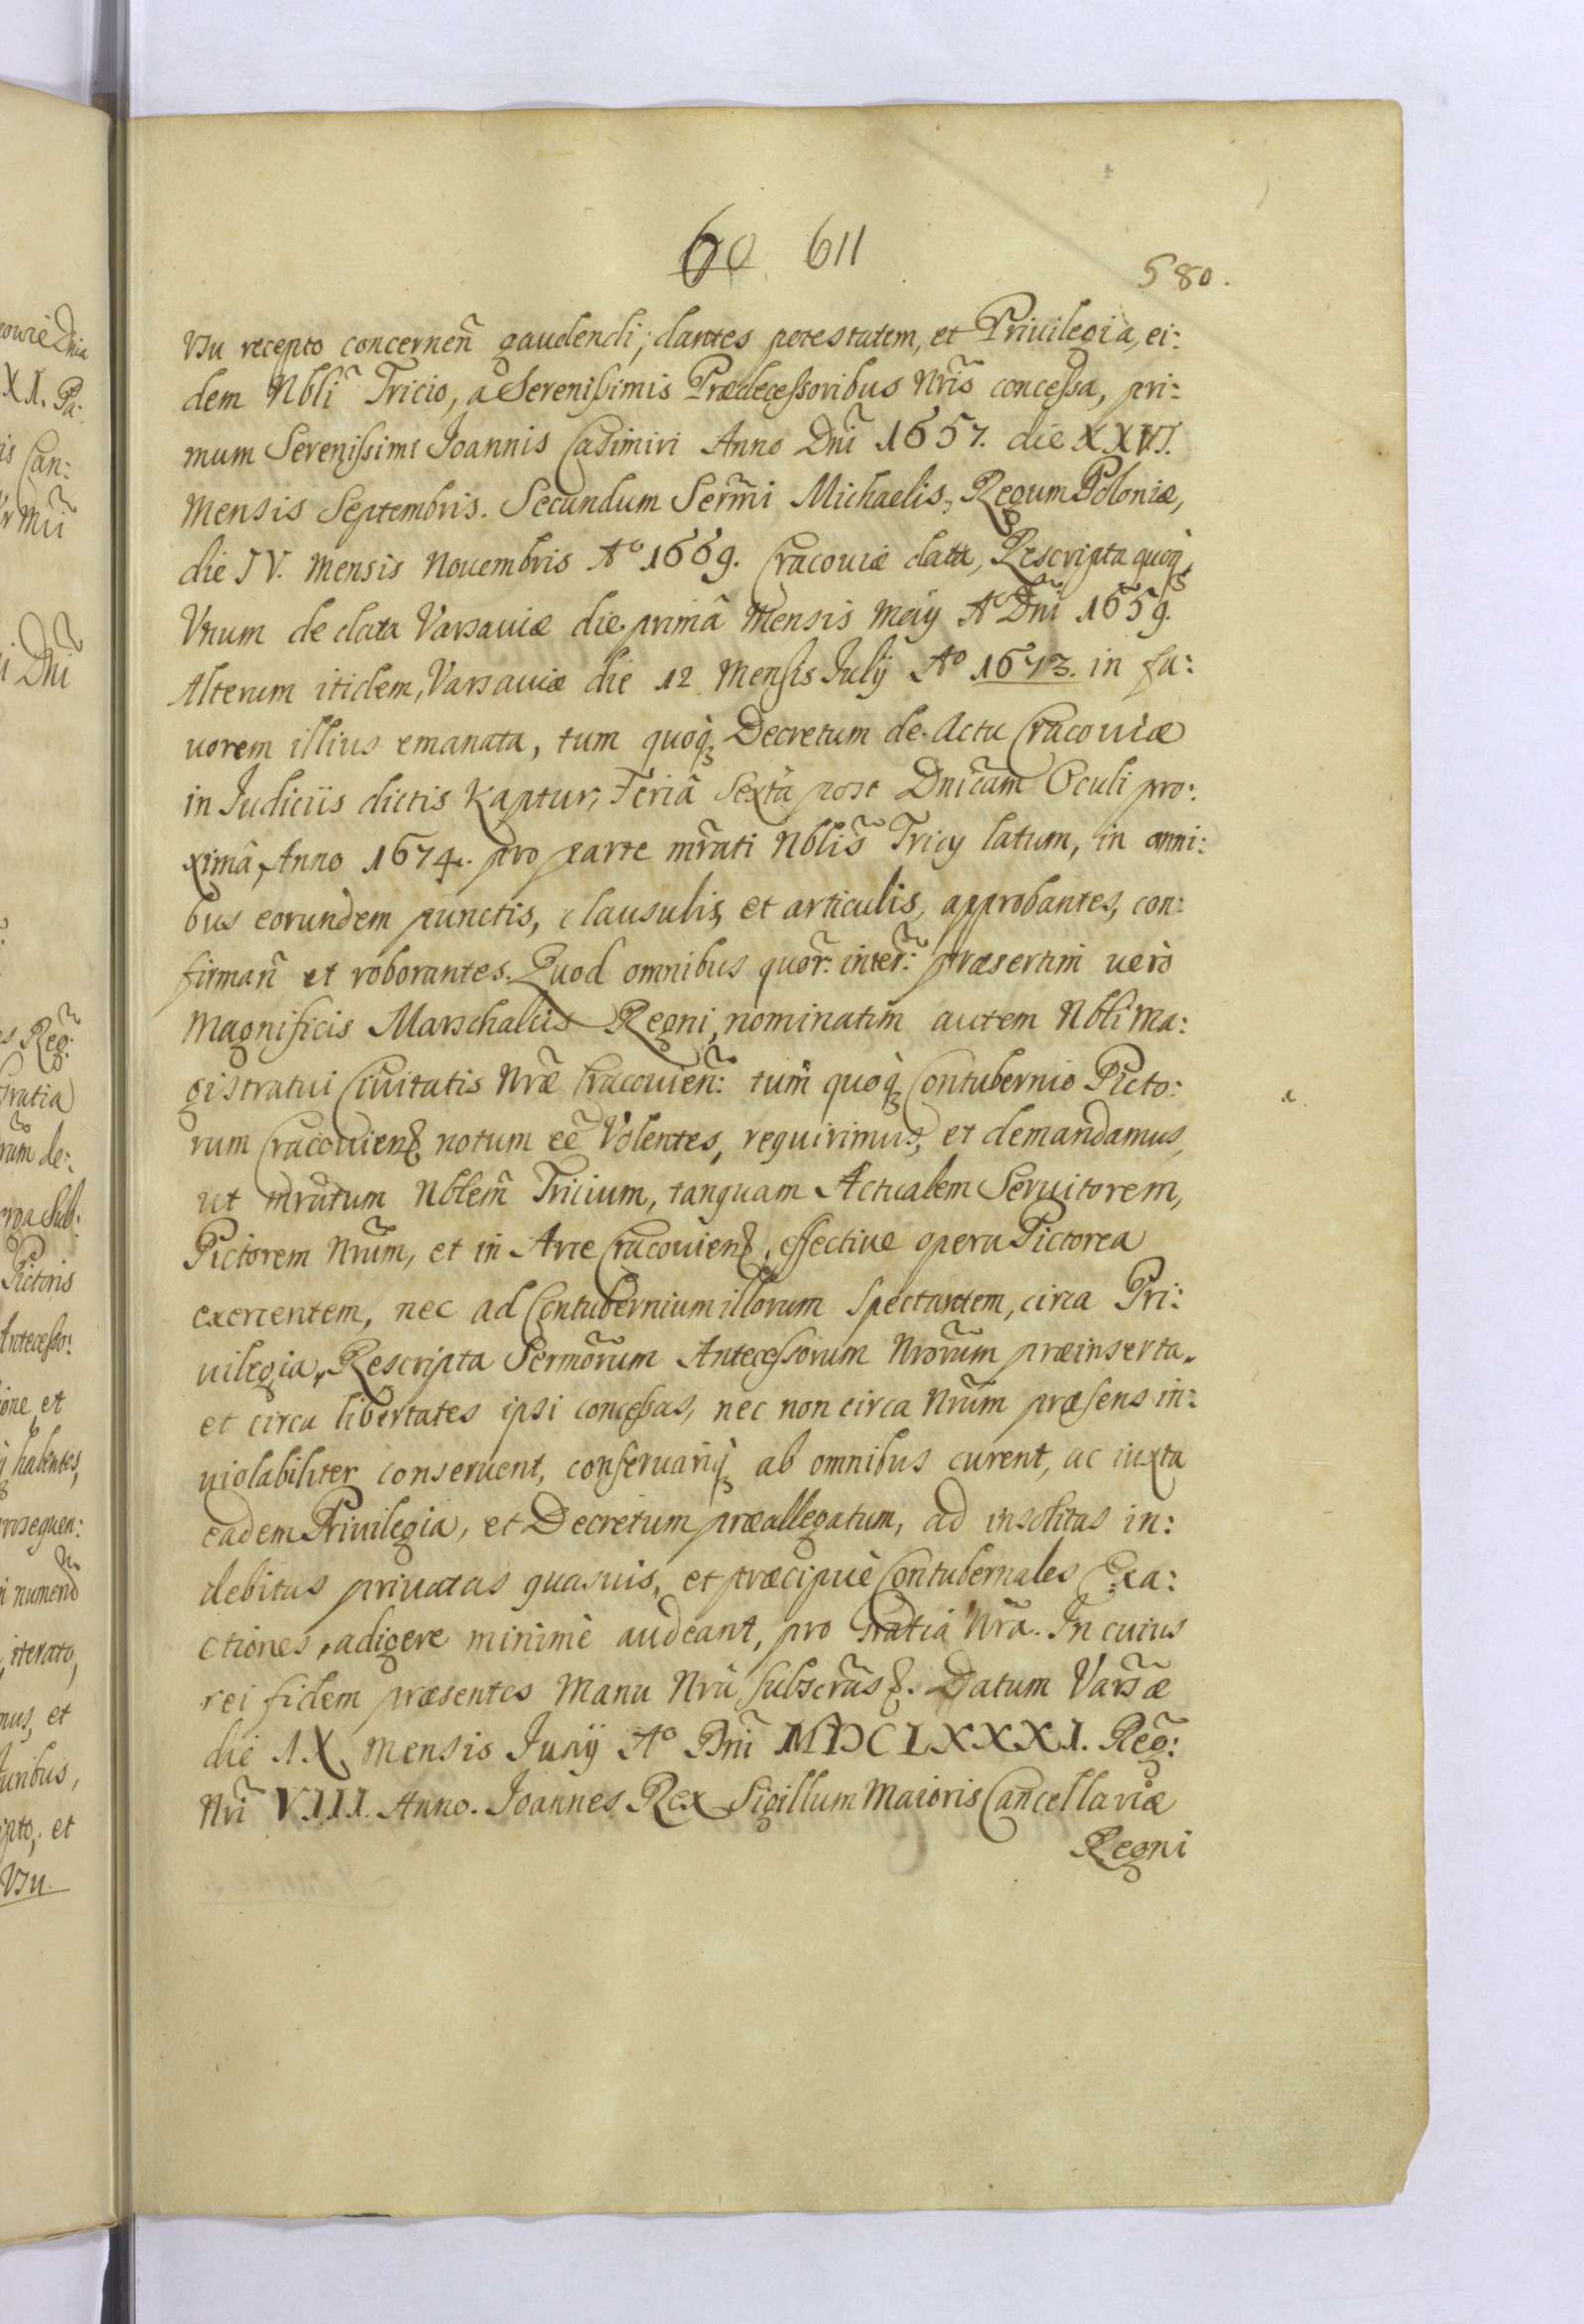 60 611
580.
Vsu recepto concerneñ gaudendi; dantes potestatem, et Priuilegia, ei:
dem Nbli Tricio, a Serenissimis Prædecessoribus Nris concessa, pri:
mum Serenissimi Joannis Casimiri Anno Dni 1657. die XXVI.
Mensis Septembris. Secundum Sermi Michaelis, Regum Poloniæ,
die IV. Mensis Nouembris Aº 1669. Cracouiæ data, Rescripta quoq,
Vnum de data Varsauiæ die primâ Mensis Maij Aº Dni 1659.
Alterum itidem, Varsauiæ die 12 Mensis Julij Aº 1673. in fa:
uorem illius emanata, tum quoq Decretum de Actu Cracouiæ
in Judiciis dictis Kaptur, Feriâ Sextâ post Dnicam Oculi pro:
ximâ, Anno 1674. pro parte mrati Nblis Tricy latum, in omni:
bus eorundem punctis, clausulis, et articulis, approbantes, con:
firmañ et roborantes. Quod omnibus quor: inter: præsertim uerò
Magnificis Marschalcis Regni, nominatim autem Nbli Ma:
gistratui Ciuitatis Nræ Cracouien: tum quoq Contubernio Picto:
rum Cracouien notum eê Volentes, requirimus, et demandamus,
ut mratum Nblem Tricium, tanquam Actualem Seruitorem,
Pictorem Nrum, et in Arce Cracouien, effectiue opera Pictorea
exercentem, nec ad Contubernium illorum Spectantem, circa Pri:
uilegia, Rescripta Sermorum Antecessorum Nrorum præinserta,
et circa libertates ipsi concessas, nec non circa Nrum præsens in:
uiolabiliter conseruent, conseruariq ab omnibus curent, ac iuxta
eadem Priuilegia, et Decretum præallegatum, ad insolitas in:
debitas priuatas quasuis, et præcipuè Contubernales Exa:
ctiones, adigere minimè audeant, pro Gratiâ Nrâ. In cuius
rei fidem præsentes Manu Nrâ Subscras. Datum Varsæ
die IX Mensis Junij Aº Dni MDCLXXXI. Reg:
Nri VIII. Anno. Joannes Rex Sigillum Maioris Cancellariæ
Regni